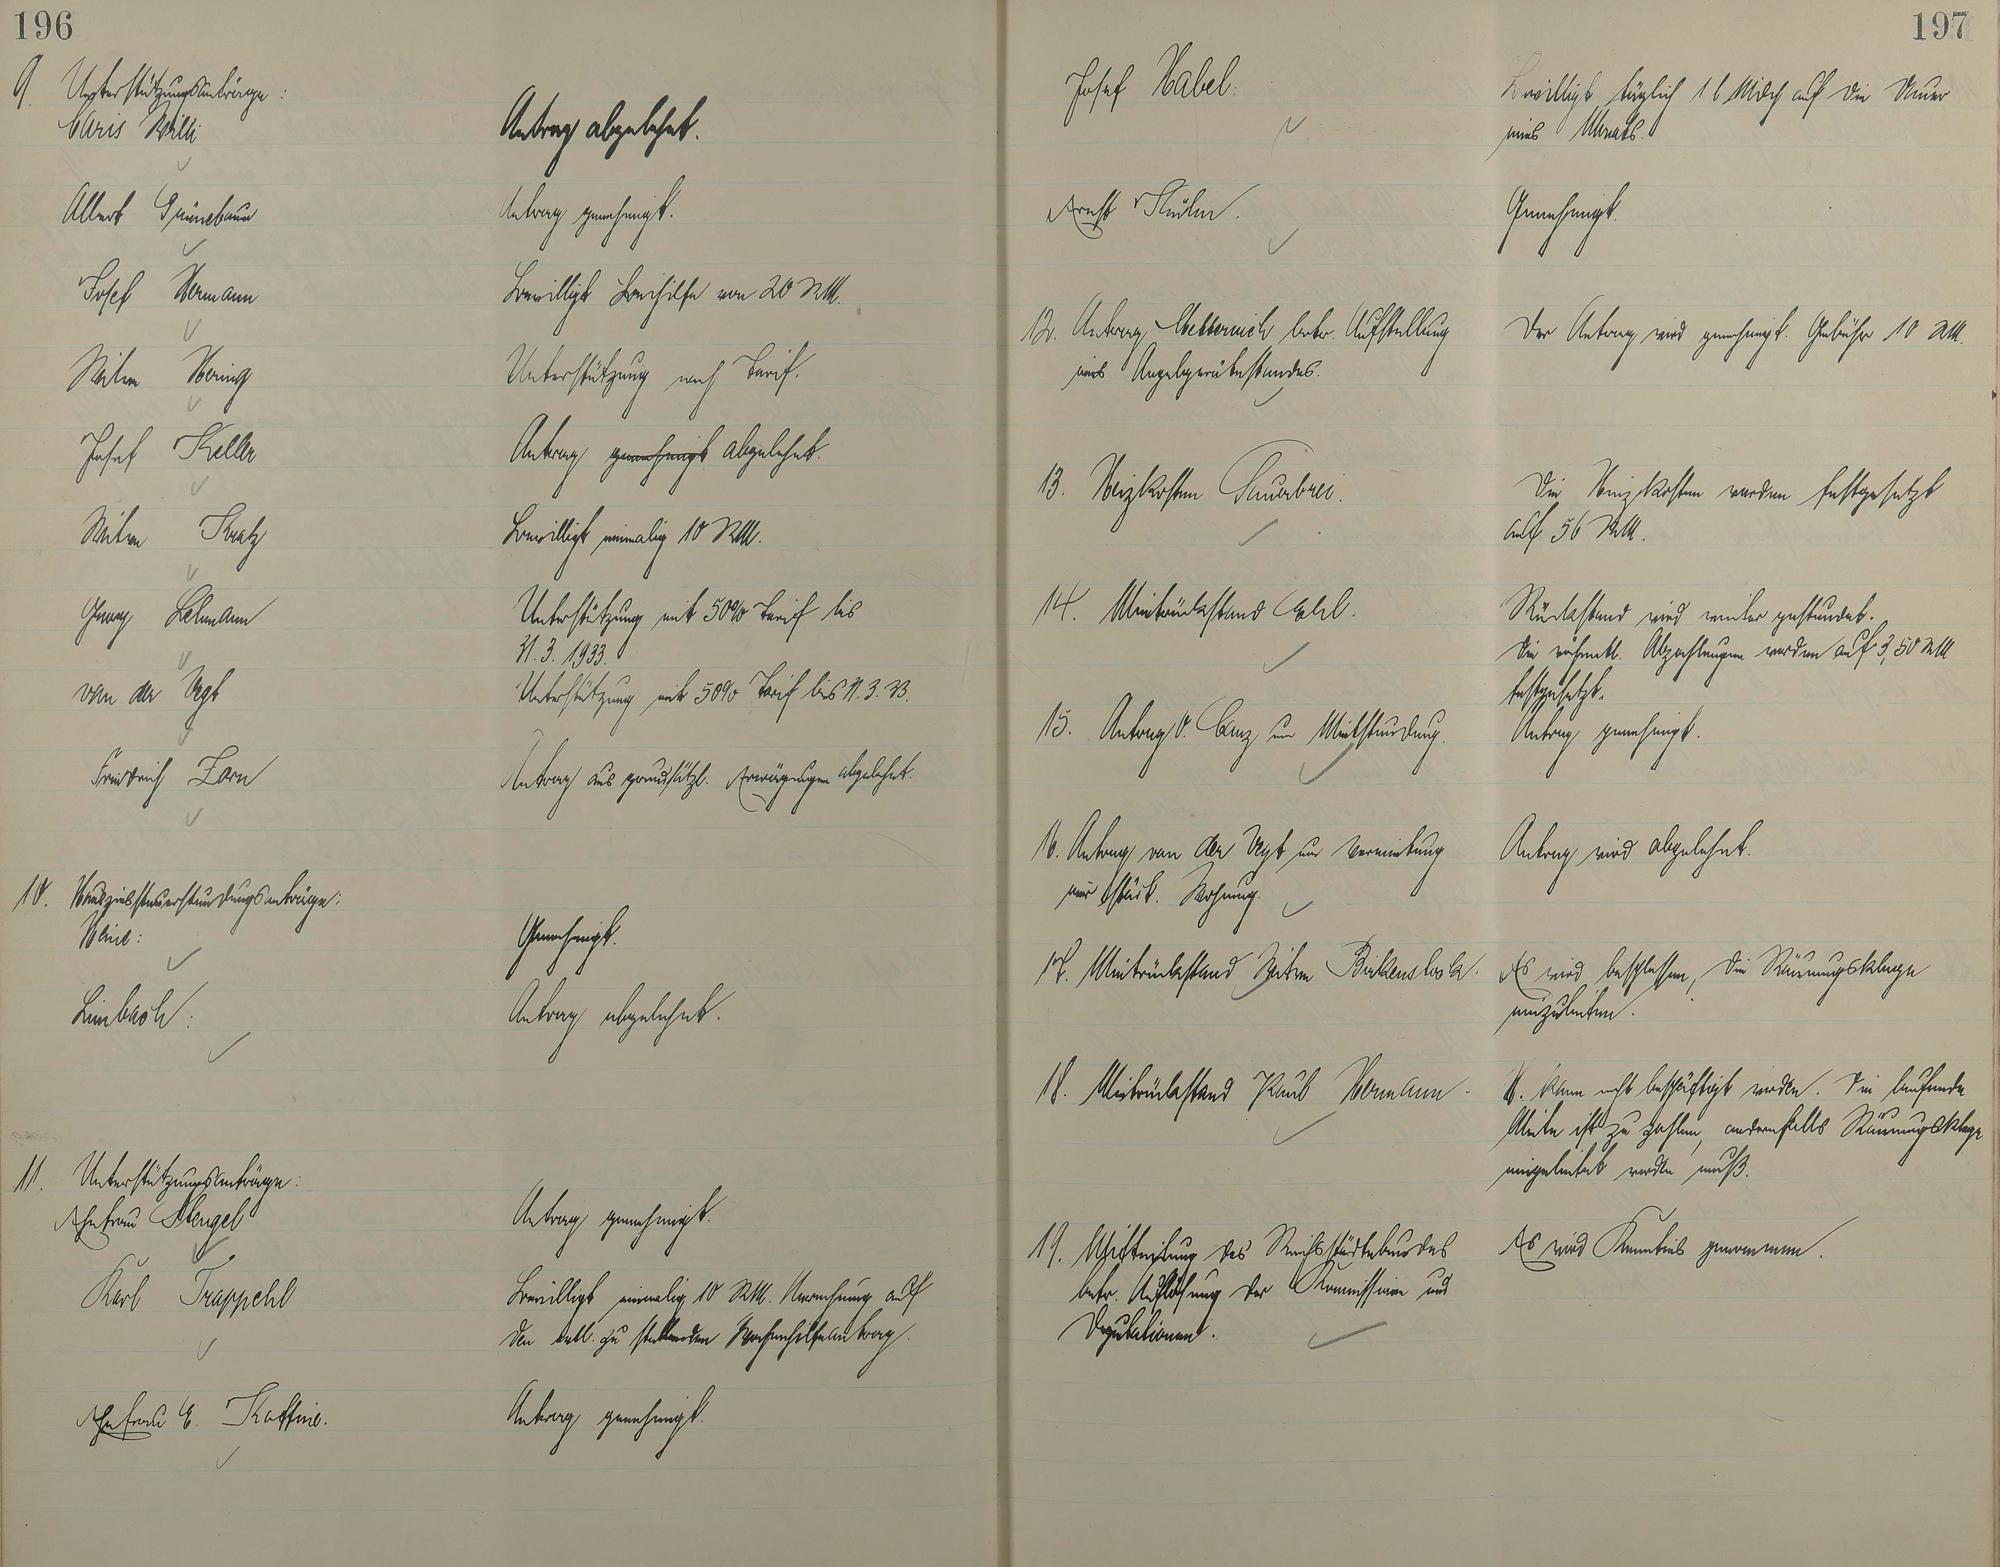 196
9. Unterstützungsanträge:
Willi
Antrag abgelehnt.
Albert Grünebaum
Antrag genehmigt.
Josef Hermann
Bewilligt Beihilfe von 20 RM.
Witwe Hering
Unterstützung nach Tarif.
Josef Keller
Antrag genehmigt abgelehnt.
Witwe Kratz
Bewilligt einmalig 10 RM.
Georg Lehmann
Unterstützung mit 50% Tarif bis
31. 3. 1933.
van der Vegt
Unterstützung mit 50% Tarif bis 31. 3. 33.
Friedrich Zorn
Antrag aus grundsätzl. Erwägungen abgelehnt.
10. Hauszinssteuerstundungsanträge:
Genehmigt.
Limbach:
Antrag abgelehnt.
11. Unterstützungsanträge:
Ehefrau Stengel
Antrag genehmigt.
Karl Trappehl
Bewilligt einmalig 10 RM. Anrechnung auf
den evtl. zu stellenden Wochenhilfeantrag.
Ehefrau E. Kaffine.
Antrag genehmigt.
197
Josef Habel:
Bewilligt täglich 1 l Milch auf die Dauer
eines Monats.
Ernst
Genehmigt.
12. Antrag Metternich betr. Aufstellung
eines Angelgerätestandes.
Der Antrag wird genehmigt. Gebühr 10 RM.
13. Heizkosten Sauerbrei.
Die Heizkosten werden festgesetzt
auf 56 RM.
14. Mietrückstand
Rückstand wird weiter gestundet.
Die wöchentl. Abzahlungen werden auf 3,50 RM
festgesetzt.
15. Antrag V. Canz um Mietstundung.
Antrag genehmigt.
16. Antrag van der Vegt um Vermietung
einer städt. Wohnung.
Antrag wird abgelehnt.
17. Mietrückstand Witwe Birkenstock.
Es wird beschlossen, die Räumungsklage
einzuleiten.
18. Mietrückstand Paul Hermann.
H. kann nicht beschäftigt werden. Die laufende
Miete ist zu zahlen, andernfalls Räumungsklage
eingeleitet werden muß.
19. Mitteilung des Reichsstädtebundes
betr. Auflösung der Kommission und
Deputationen.
Es wird Kenntnis genommen.